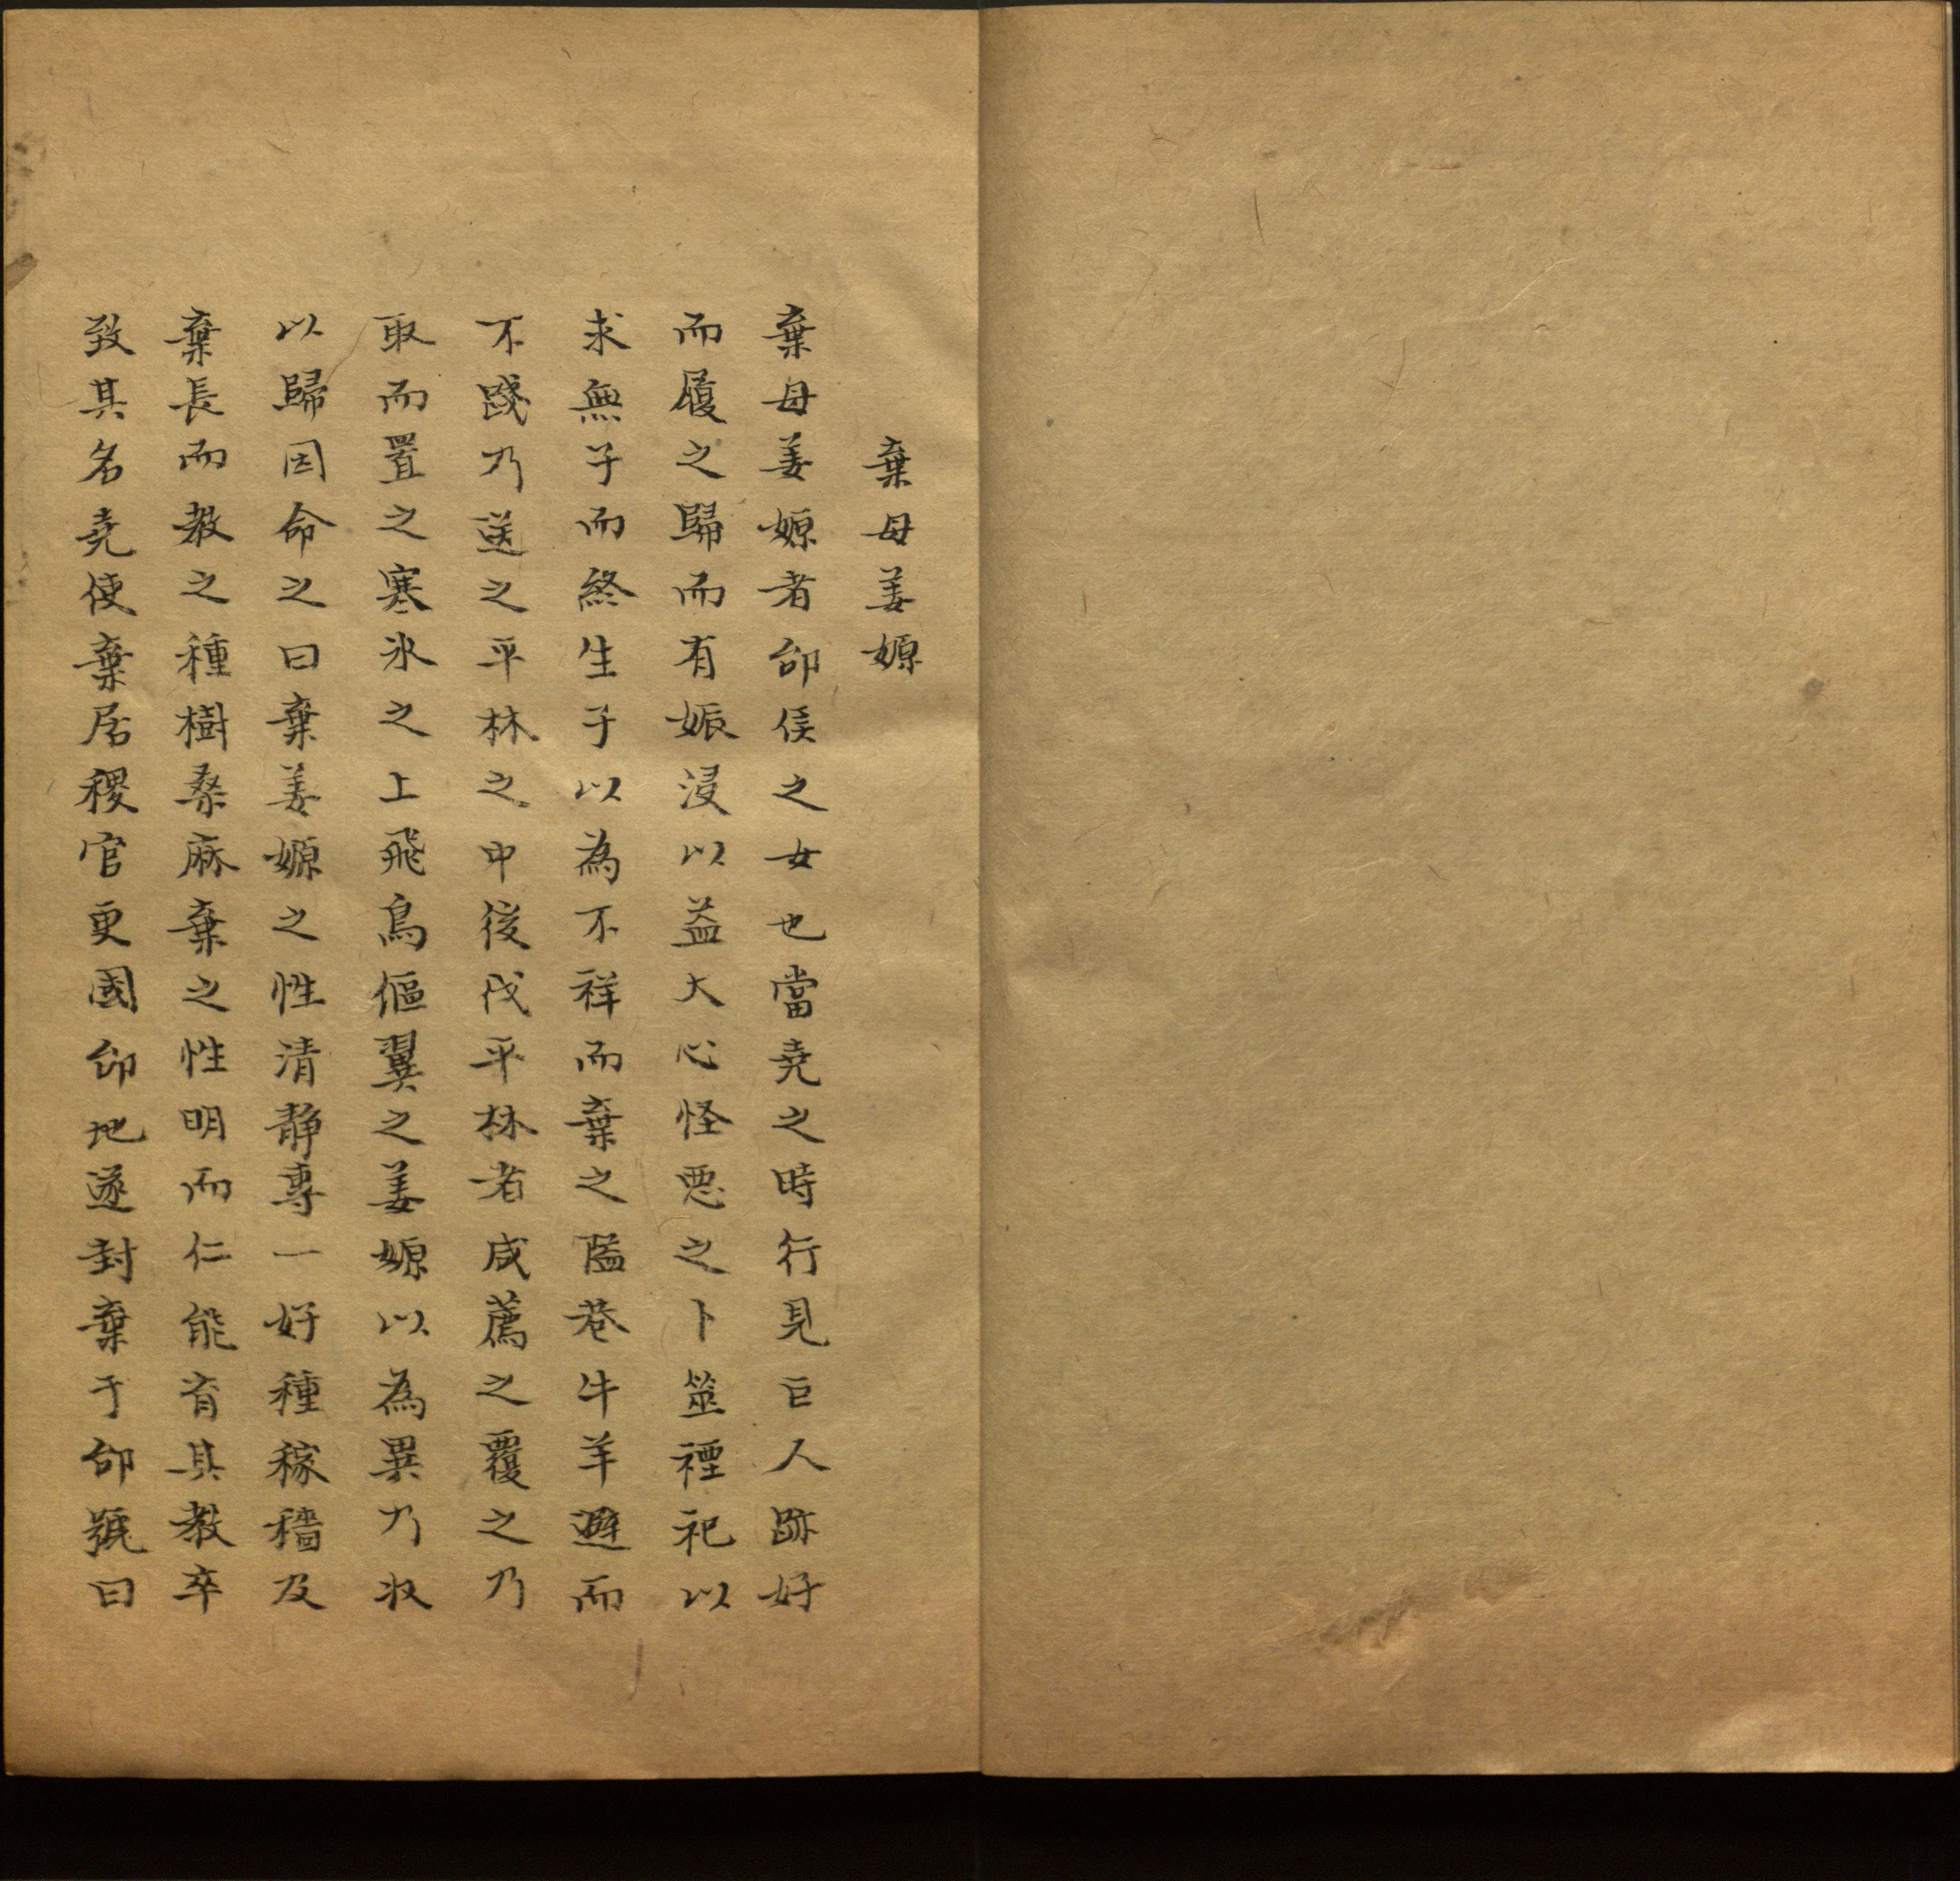 棄母姜嫄
棄母姜嫄者邰侯之女也當堯之時行見巨人跡好
而履之歸而有娠浸以益大心怪惡之卜筮禋祀以
求無子而終生子以為不祥而棄之隘巷牛羊避而
不踐乃送之平林之中後伐平林者咸薦之覆之乃
取而置之寒氷之上飛鳥傴翼之姜嫄以為異乃收
以歸因命之曰棄姜嫄之性清靜專一好種稼穡及
棄長而教之種樹桑麻棄之性明而仁能育其教卒
致其名堯使棄居稷官更國邰地遂封棄于邰號曰